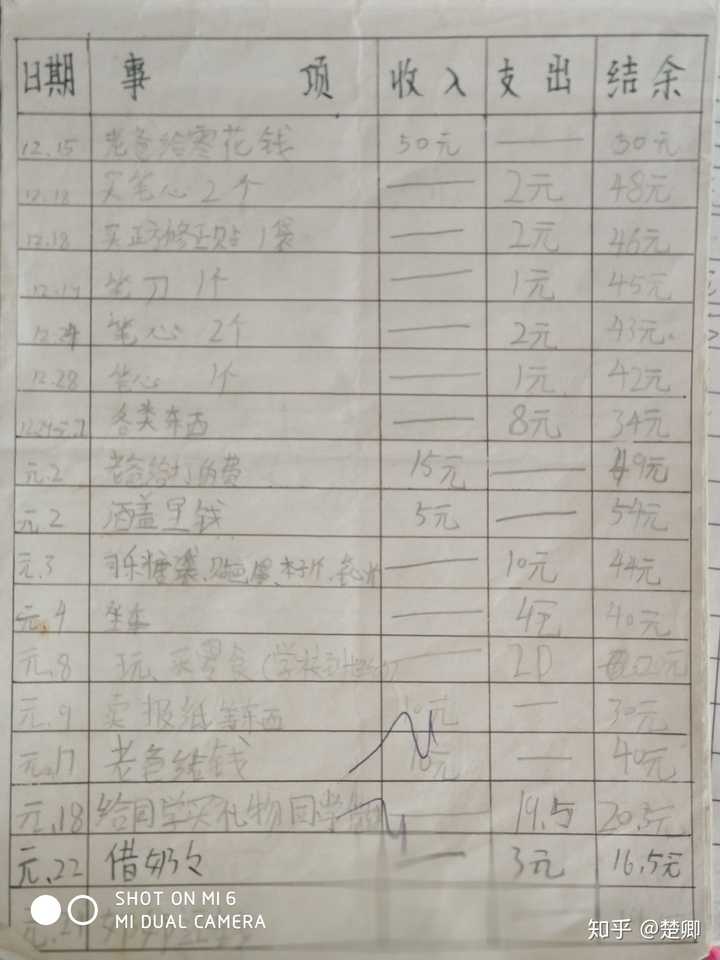 日期 事 项 收入 支出 结余
12.15 老爸给零花钱 50元 — 50元
12.18 买笔心 2个 — 2元 48元
12.18 买正方修正贴 1袋 — 2元 46元
笔刀 1个 — 1元 45元
12.24 笔心 2个 — 2元 43元
12.28 笔心 1个 — 1元 42元
各类东西 — 8元 34元
元.2 老爸给打的费 15元 — 49元
元.2 酒盖里钱 5元 — 54元
元.3 可乐糖 — 10元 44元
元.4 坐车 — 4元 40元
元.8 玩、买零食(学校 — 20
元.9 卖报纸等东西 10元 — 30元
元.17 老爸给钱 10元 — 40元
元.18 给同学买礼物同学 — 19.5 20.5元
元.22 借奶奶 — 3元 16.5元
SHOT ON MI 6
MI DUAL CAMERA
知乎 @楚卿